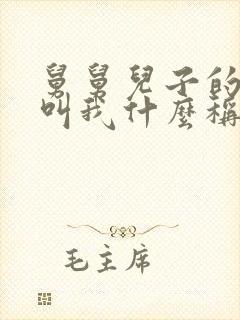 舅舅兒子的
叫我什麼稱
毛主席